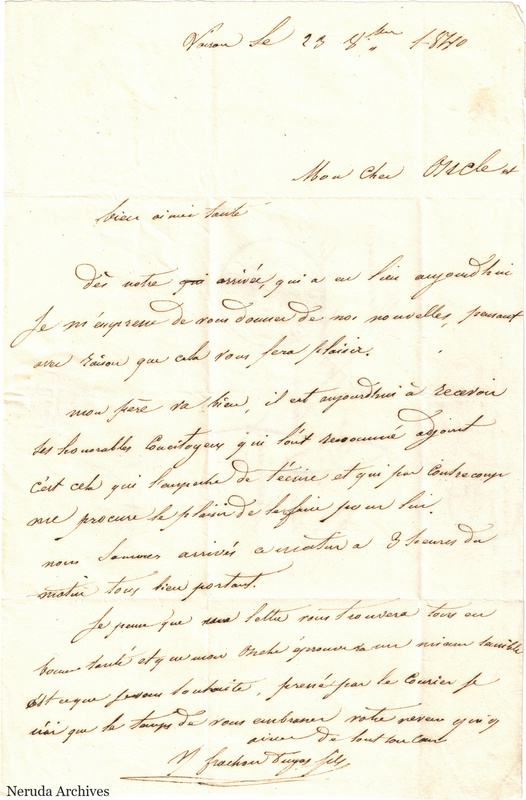 Voiron le 23 8bre 1840
Mon cher Oncle et
bien aimée tante
dès notre qui arrivée, qui a eu lieu aujourdhui
Je m'empresse de vous donner de nos nouvelles, pensant
avec raison que cela vous fera plaisir.
mon père va bien, il est aujourdhui à recevoir
ses honorables Concitoyens qui l'ont renommé adjoint
c'est cela qui l'empeche de t'écrire et qui par contre coup
me procure le plaisir de le faire pour lui.
nous sommes arrivés ce matin a 3 heures du
matin tous bien portant.
Je pense que ma lettre vous trouvera tous en
bonne santé et que mon Oncle éprouvera un mieux sensible
c'est ce que je vous souhaite, pressé par le Courier je
n'ai que le temps de vous embrasser votre neveu qui vs
aime de tout son Cœur
fils
Neruda Archives